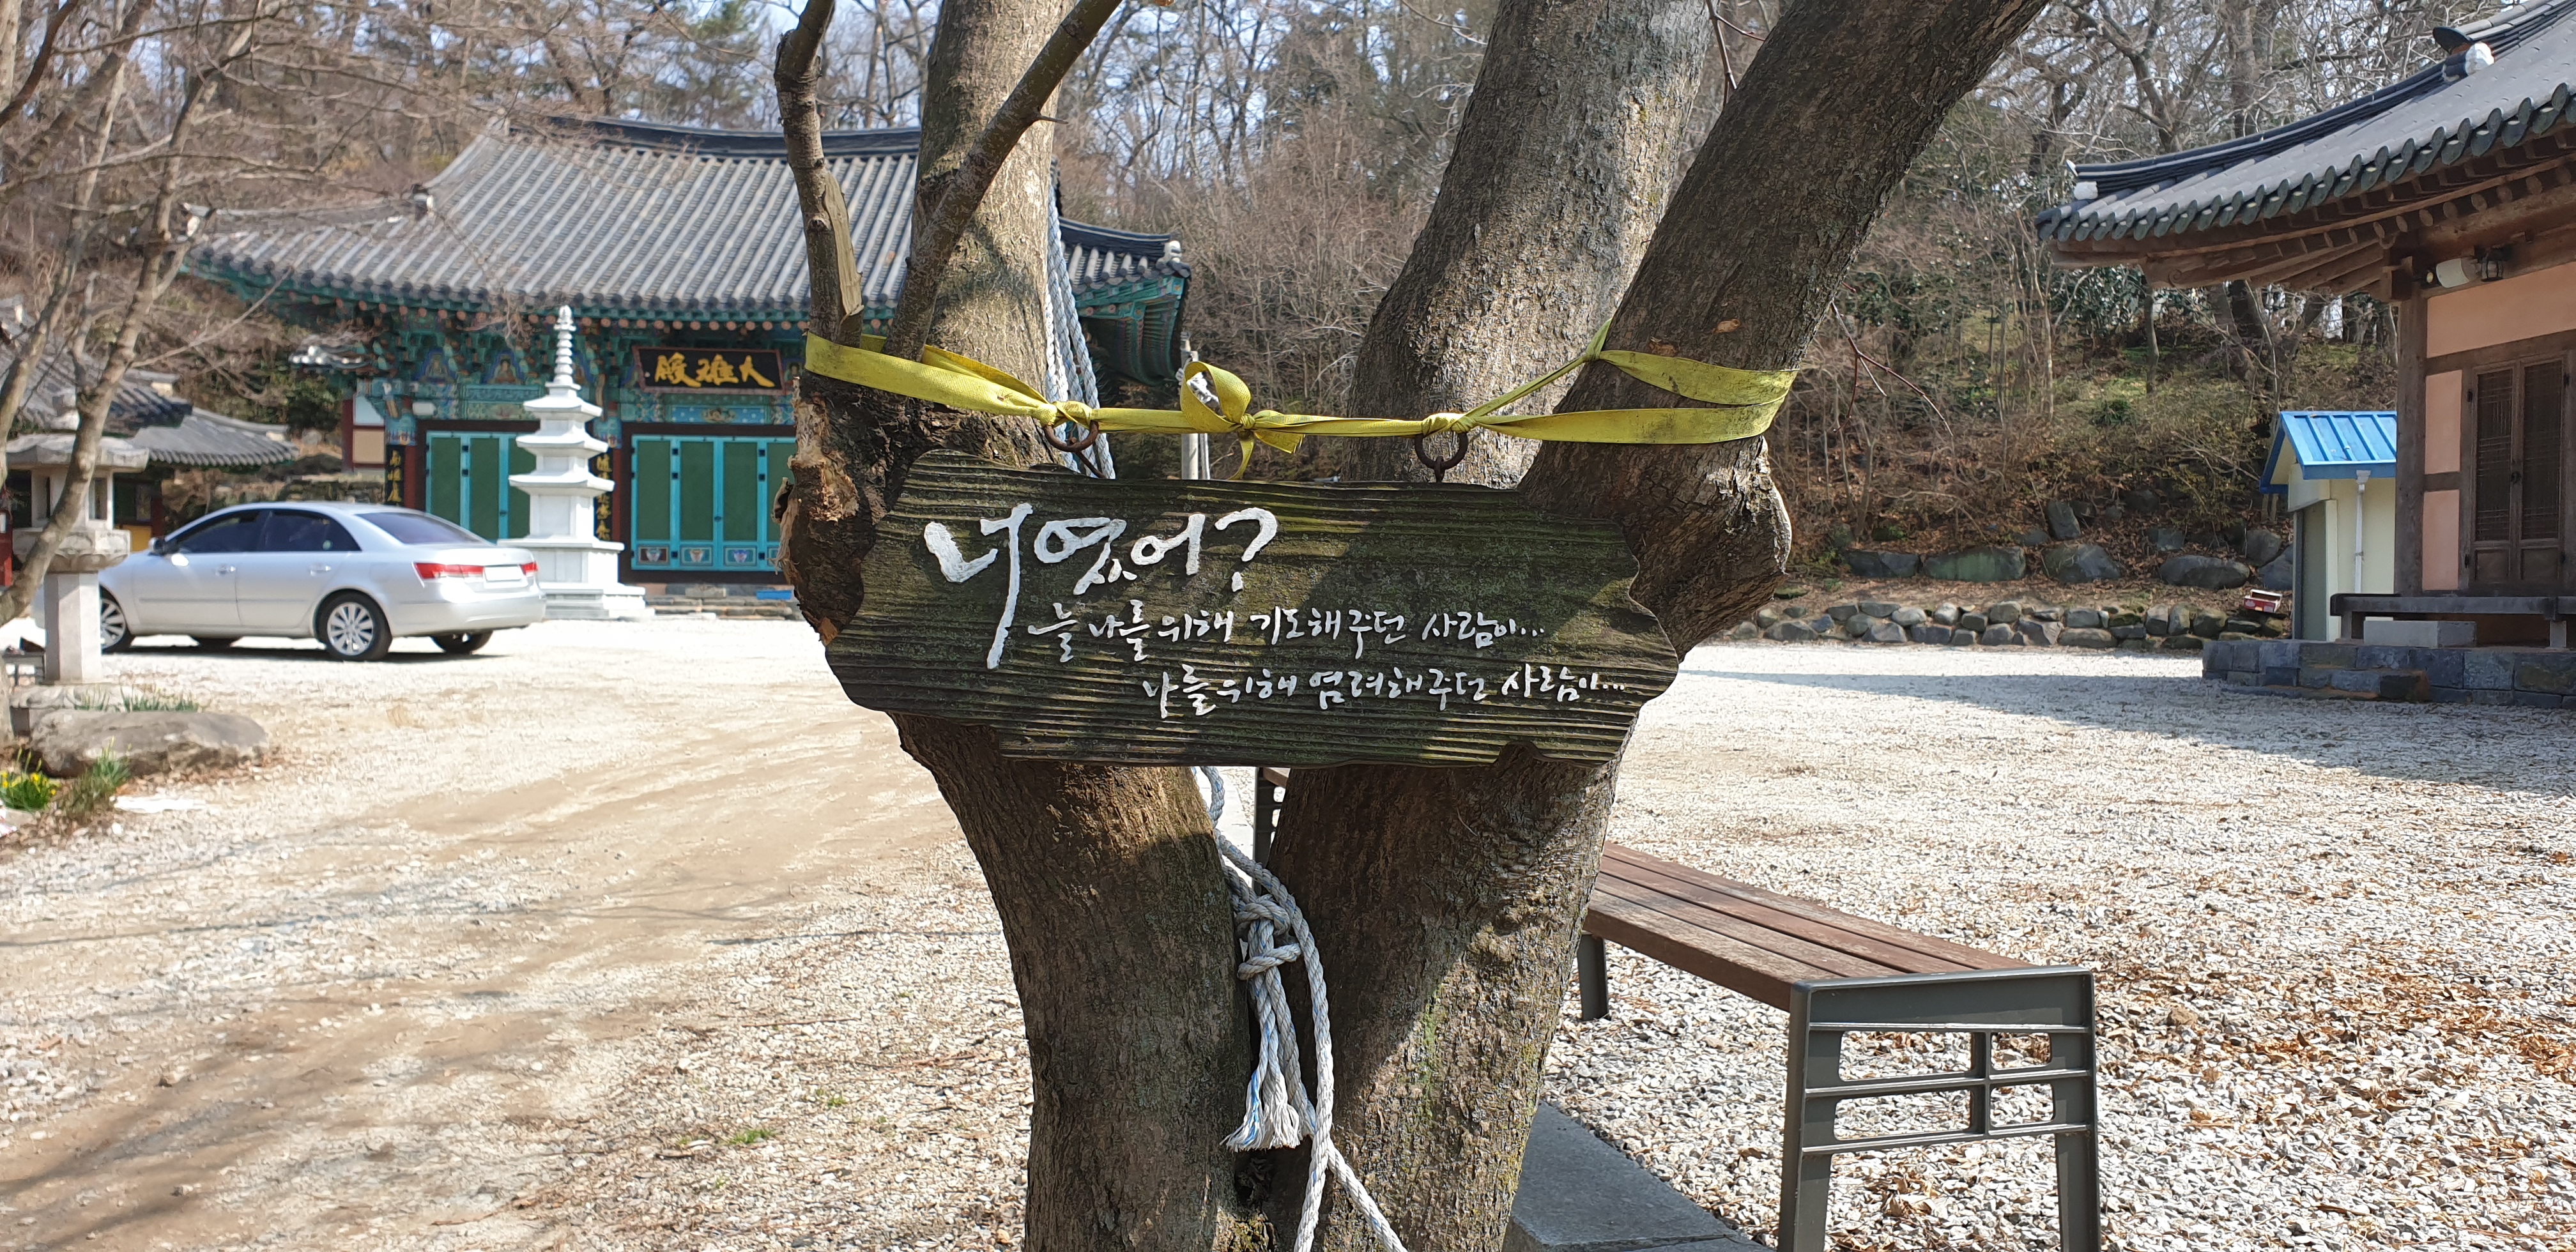 殿雄大
너였어?
늘 나를 위해 기도해주던 사람이...
나를 위해 염려해주던 사람이...